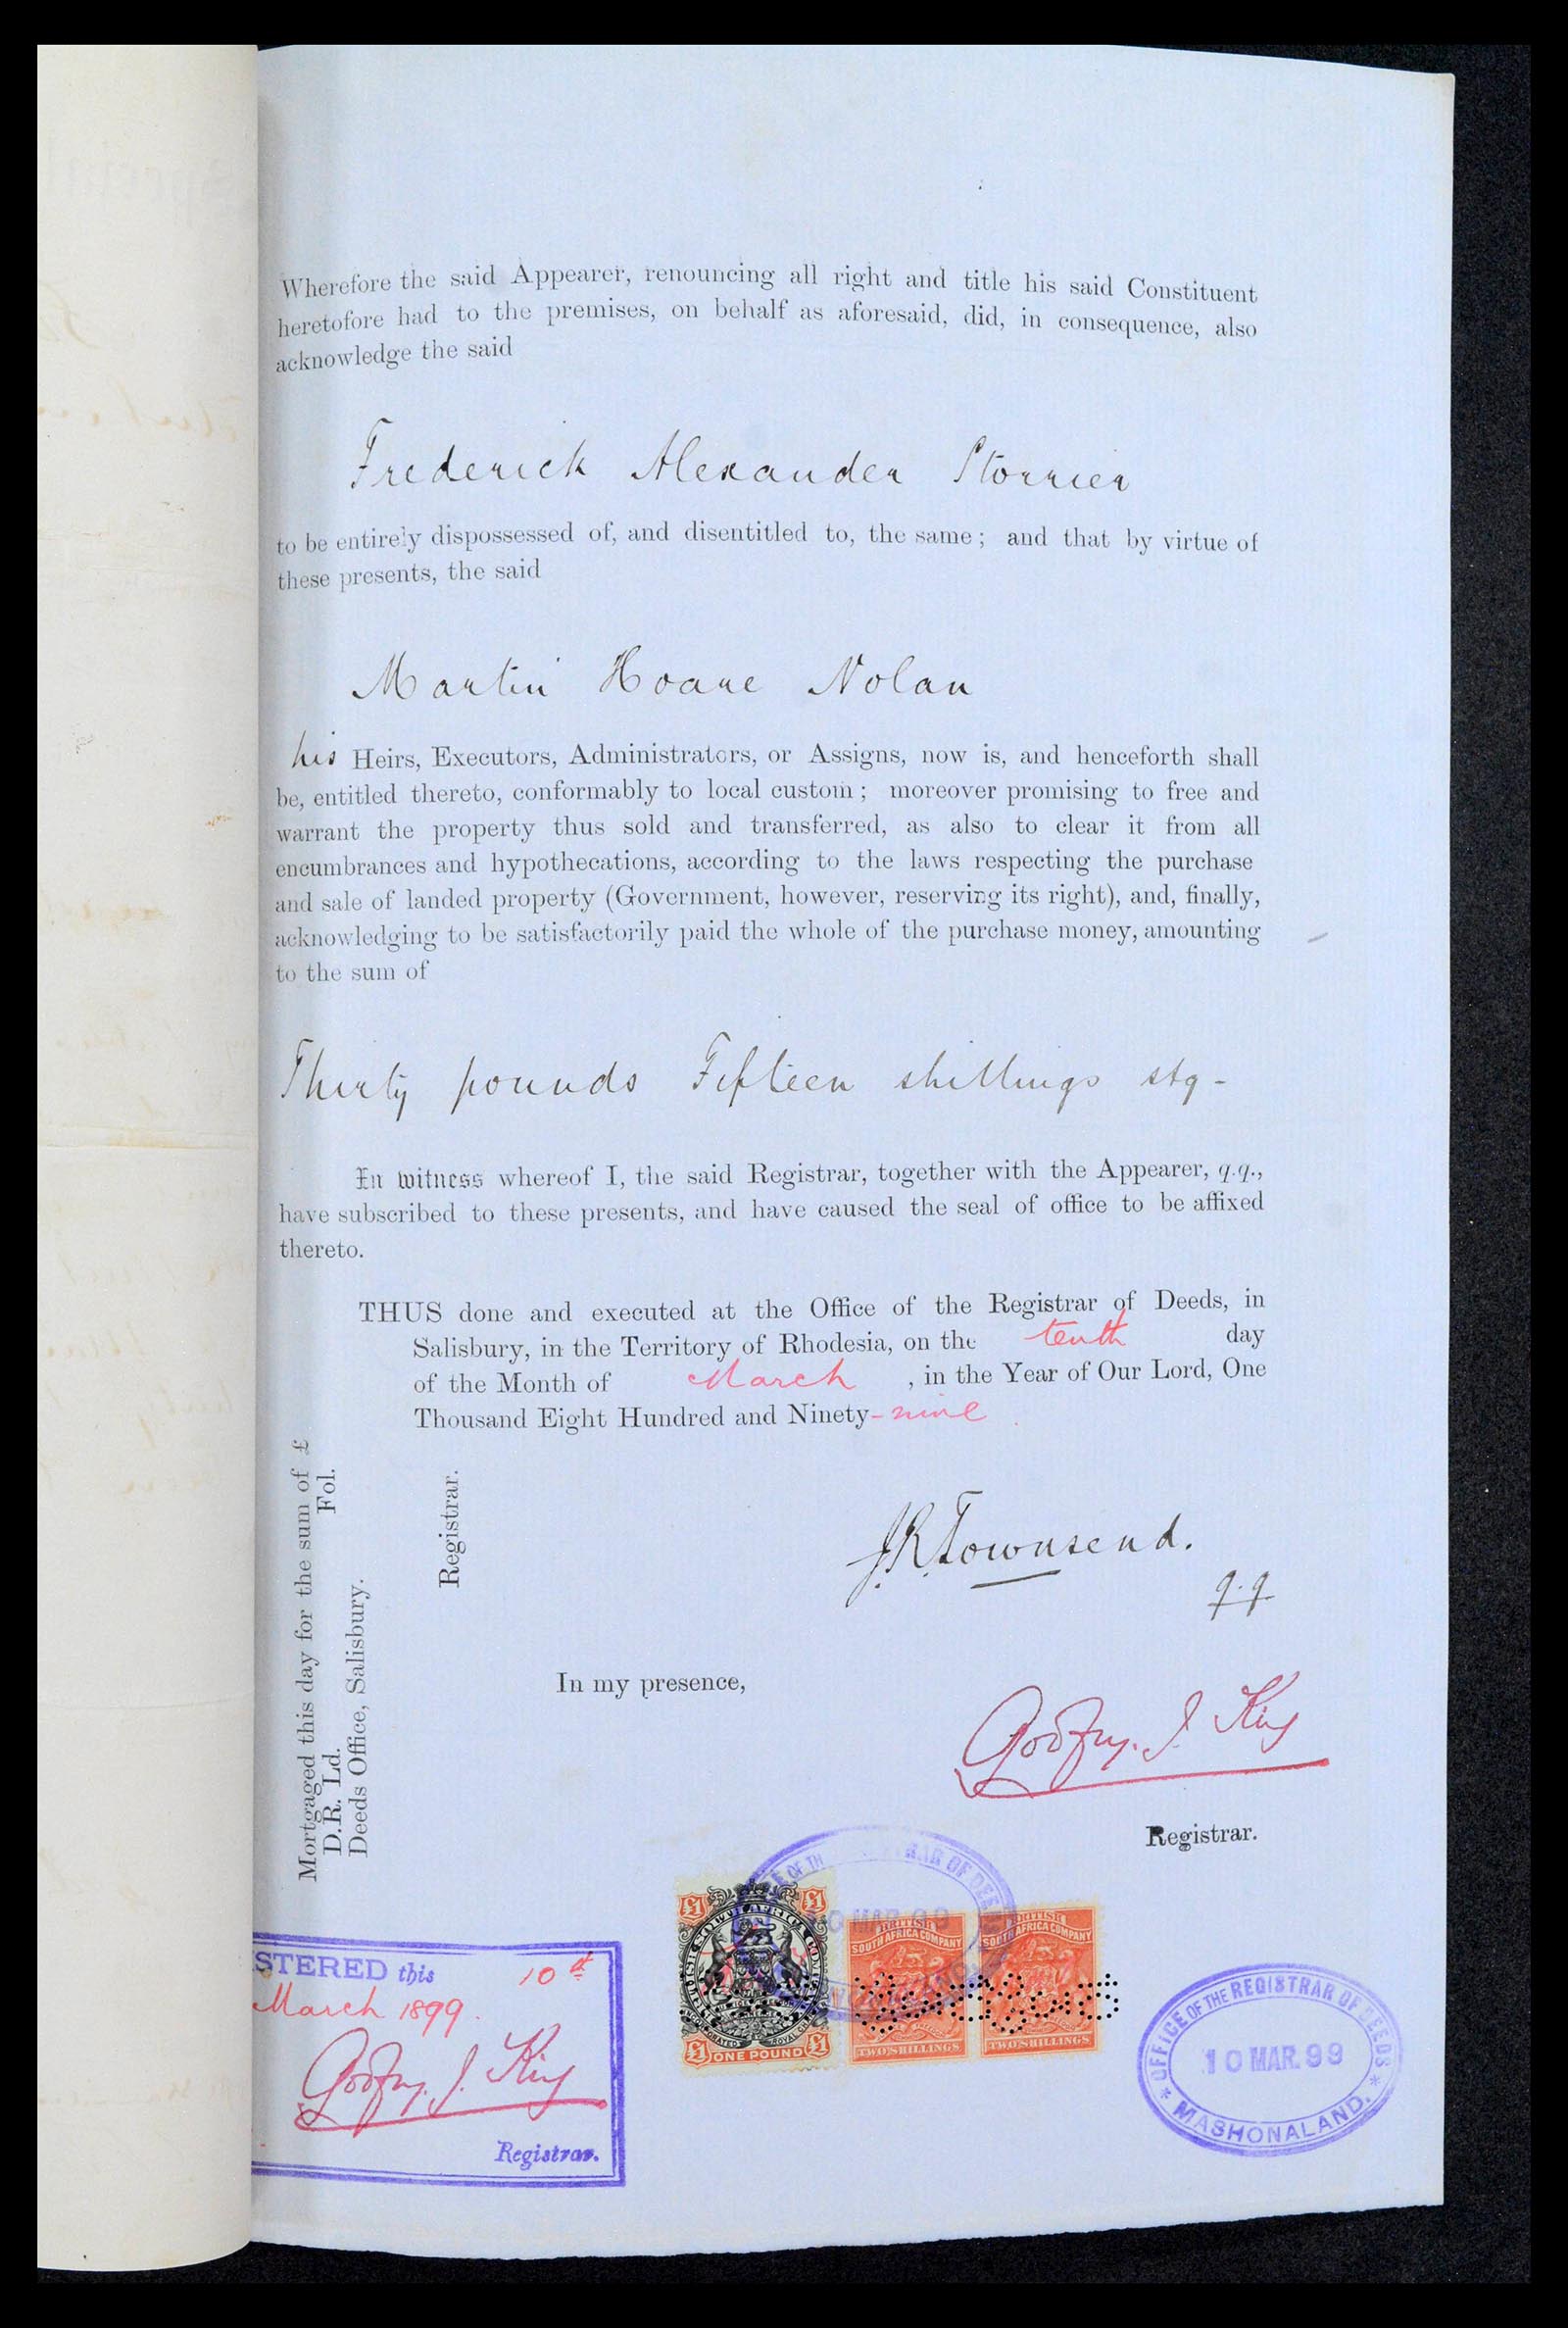 Wherefore the said Appearer, renouncing all right and title his said Constituent
heretofore had to the premises, on behalf as aforesaid, did, in consequence, also
acknowledge the said
Frederick Alexander Storrier
to be entirely dispossessed of, and disentitled to, the same; and that by virtue of
these presents, the said
Martin Hoare Nolan
his Heirs, Executors, Administrators, or Assigns, now is, and henceforth shall
be, entitled thereto, conformably to local custom; moreover promising to free and
warrant the property thus sold and transferred, as also to clear it from all
encumbrances and hypothecations, according to the laws respecting the purchase
and sale of landed property (Government, however, reserving its right), and, finally,
acknowledging to be satisfactorily paid the whole of the purchase money, amounting
to the sum of
Thirty pounds Fifteen shillings stg -
In witness whereof I, the said Registrar, together with the Appearer, q.q.,
have subscribed to these presents, and have caused the seal of office to be affixed
thereto.
THUS done and executed at the Office of the Registrar of Deeds, in
Salisbury, in the Territory of Rhodesia, on the tenth day
of the Month of March , in the Year of Our Lord, One
Thousand Eight Hundred and Ninety-nine
Mortgaged this day for the sum of £
D.R. Ld. Fol.
Deeds Office, Salisbury.
Registrar.
J.R. Townsend.
q.q
In my presence,
Godfrey J. King
Registrar.
STERED this 10th
March 1899.
Godfrey J. King
Registrar.
£1 £1
£1 ONE POUND £1
BRITISH
SOUTH AFRICA COMPANY
TWO SHILLINGS
BRITISH
SOUTH AFRICA COMPANY
TWO SHILLINGS
OFFICE OF THE REGISTRAR OF DEEDS
10 MAR. 99
* MASHONALAND. *